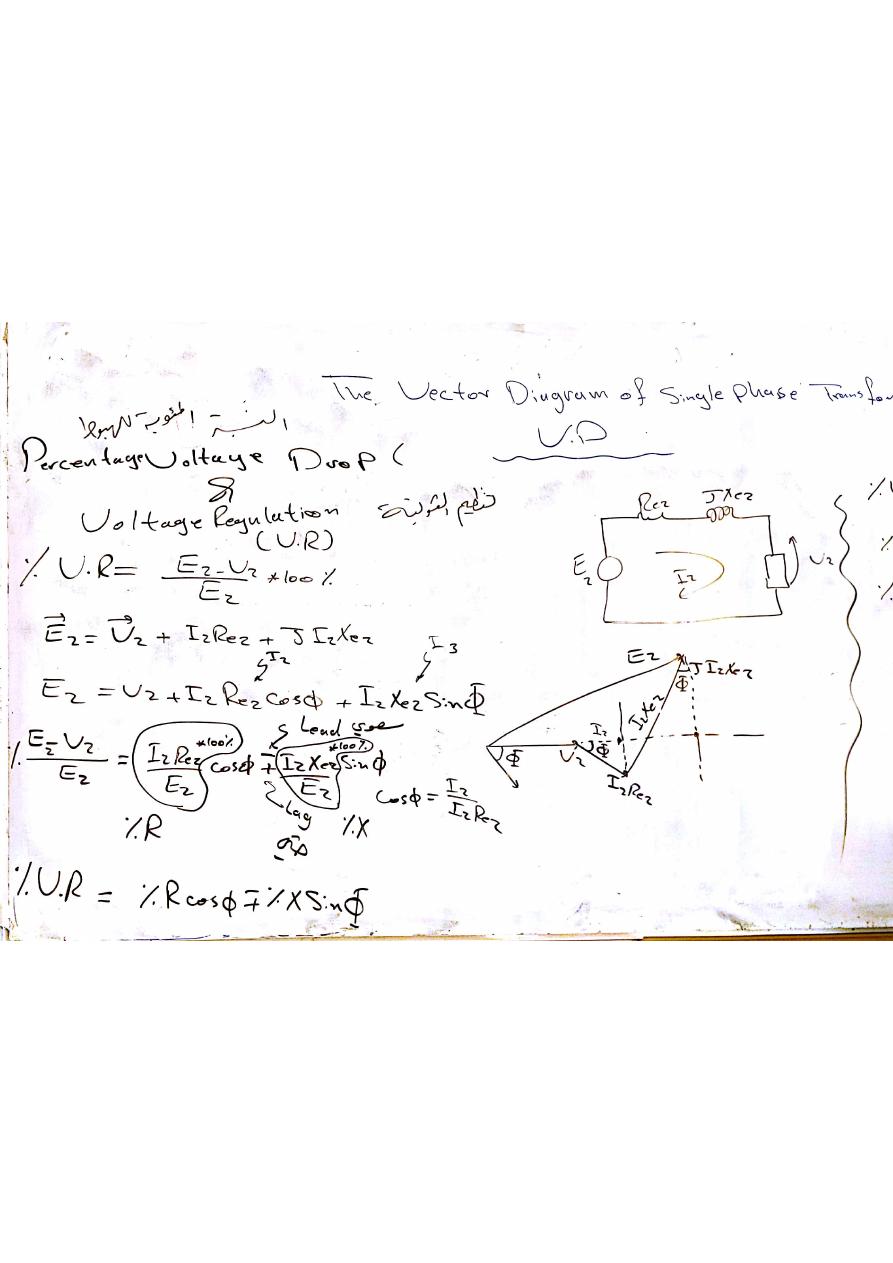 The Vector Diagram of Single Phase Transfo
V.D
النسبة المئوية للهبوط
Percentage Voltage Drop (
&
Voltage Regulation تنظيم الفولتية
(V.R)
% V.R = E2 - V2 / E2 *100 %
E2 = V2 + I2Re2 + J I2Xe2
I2 I3
E2 = V2 + I2 Re2 cosϕ + I2 Xe2 Sinϕ
Lead
% E2 - V2 / E2 = I2 Re2 *100% / E2 cosϕ ∓ I2 Xe2 *100% / E2 Sinϕ
Lag
%R %X
cosϕ = I2 / I2Re2
%V.R = %R cosϕ ∓ %X Sinϕ
Re2 JXe2
E2
I2
V2
E2
J I2Xe2
Φ
I2Xe2
I2
Φ V2 Φ
I2Re2
%V
%
%